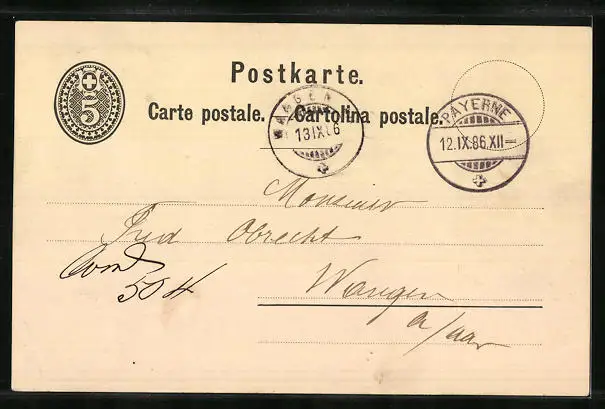 Postkarte.
5
Carte postale. Cartolina postale.
WANGEN
13 IX 86
PAYERNE
12.IX.86.XII
Monsieur
Fred Obrecht
Wangen
a/aar
50